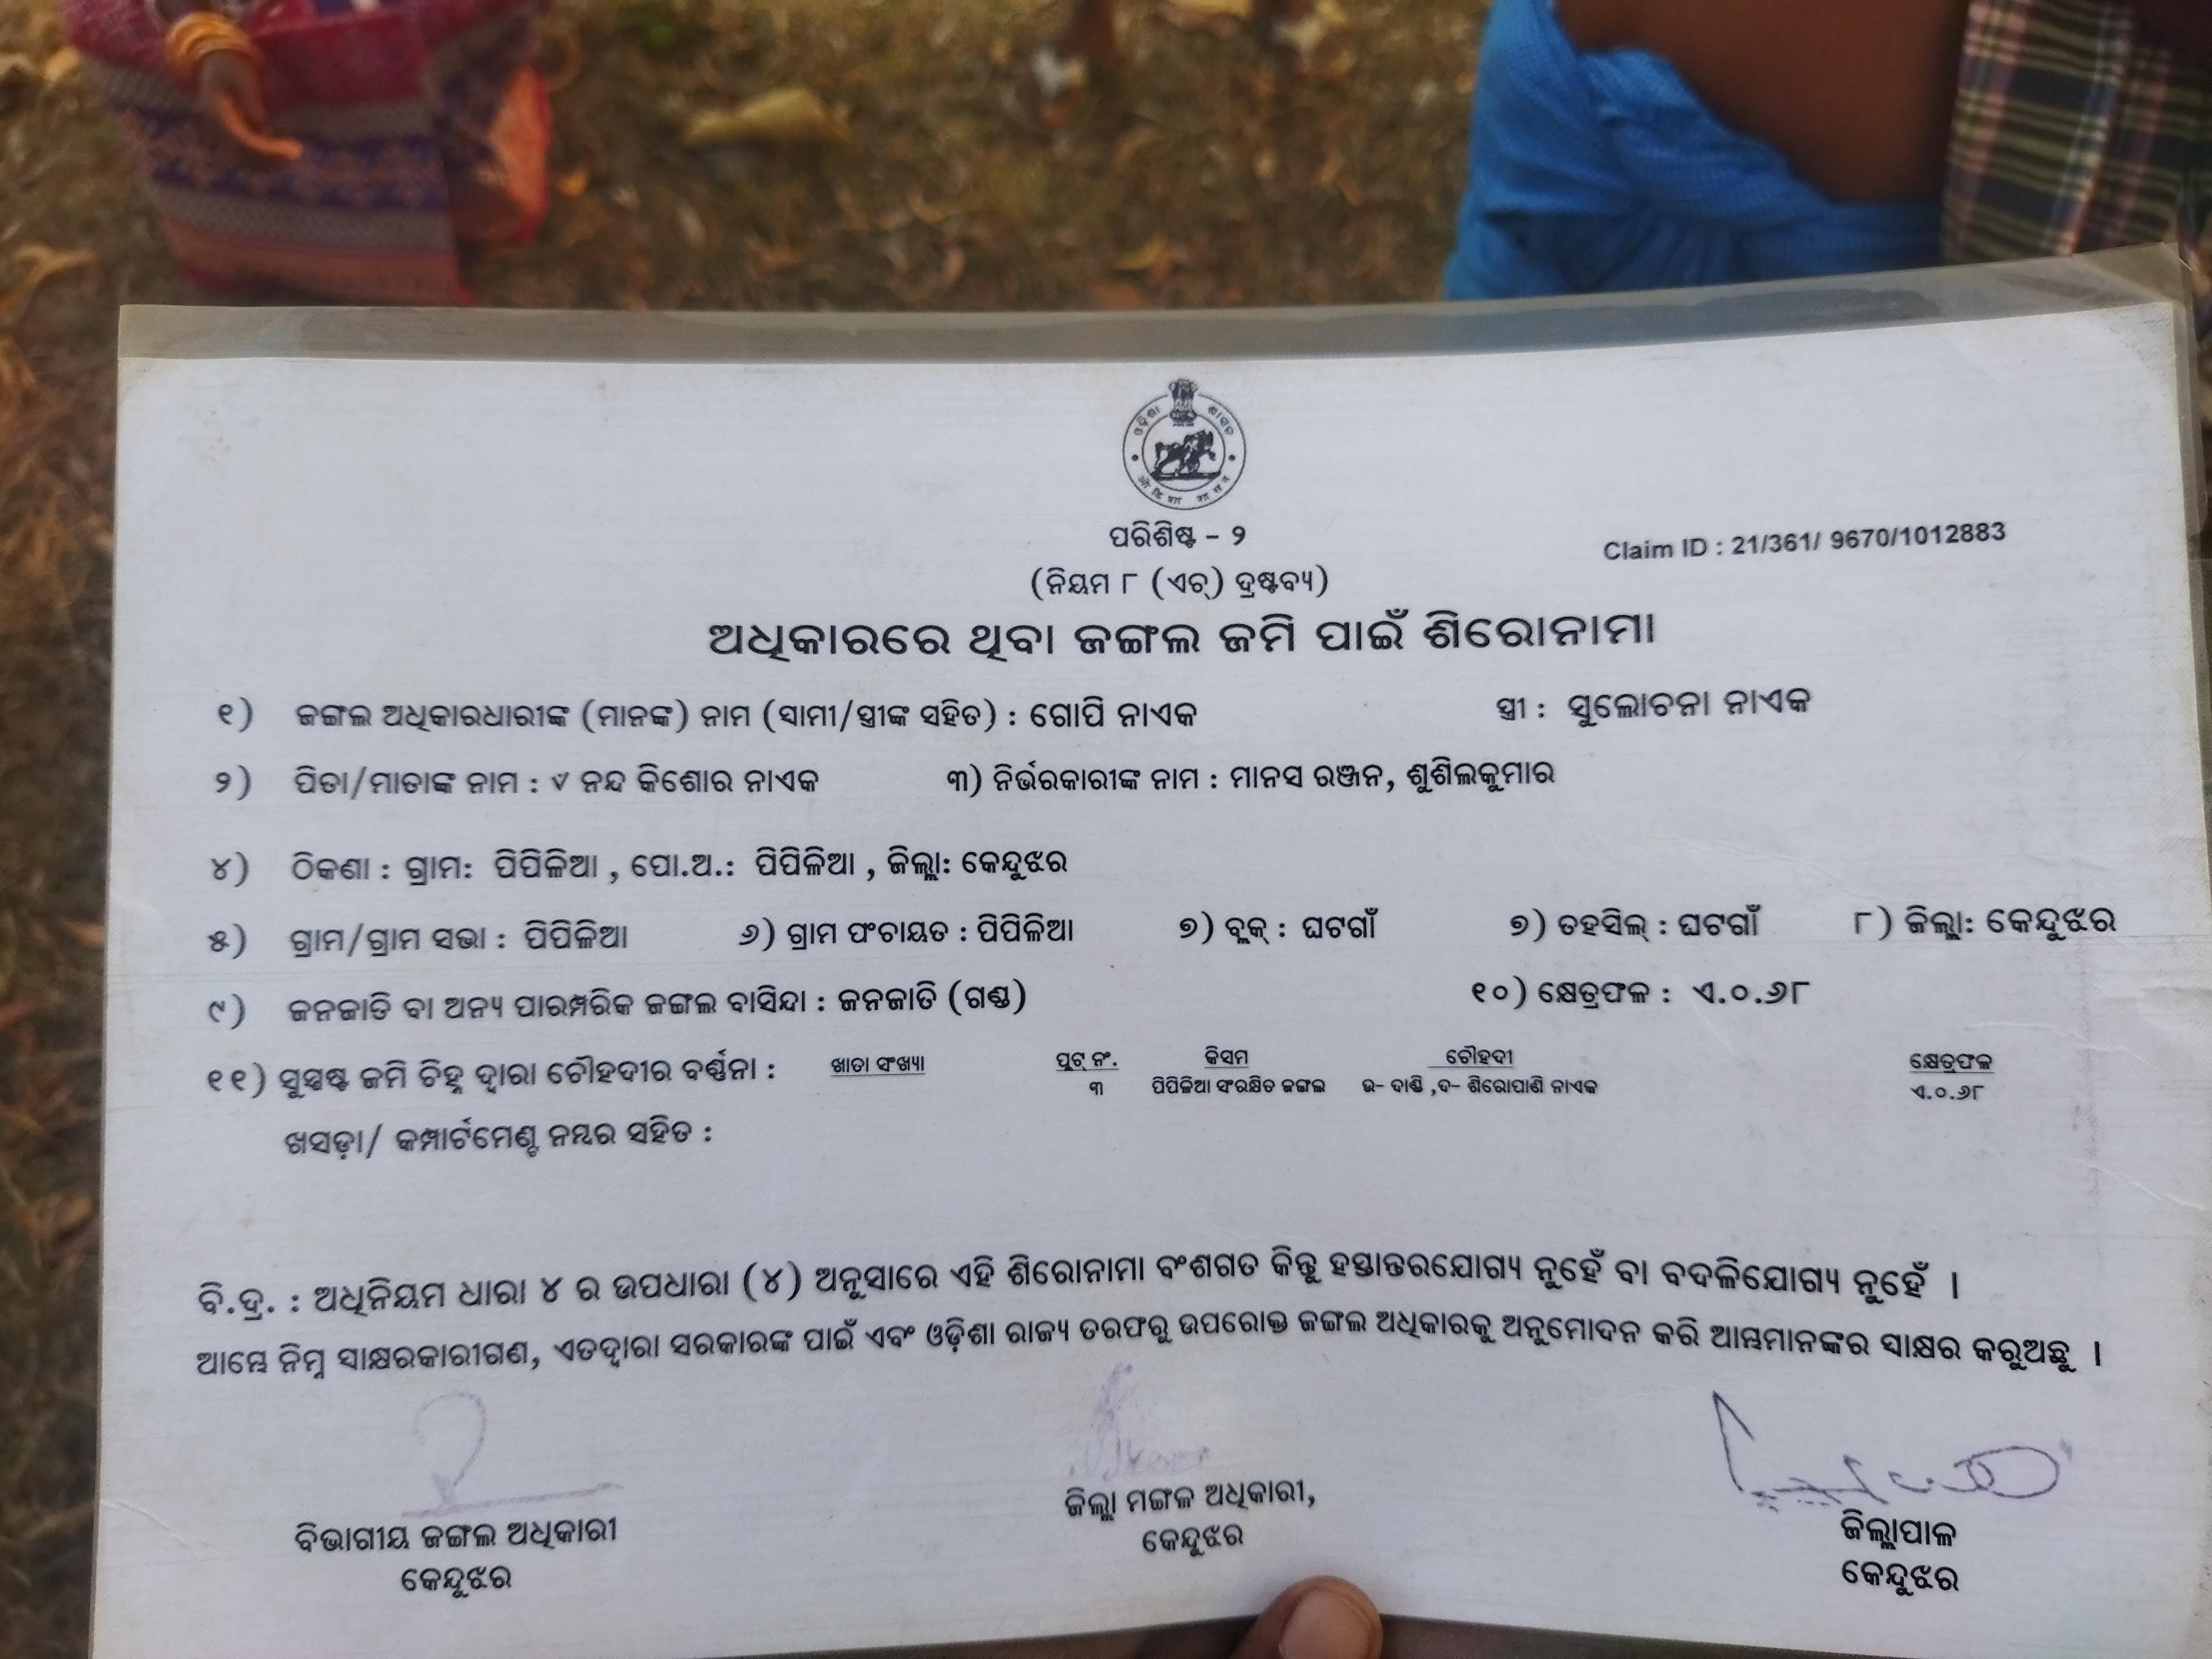 ଓଡ଼ିଶା ଶାସନ
ओडिशा शासन
ପରିଶିଷ୍ଟ - ୨
Claim ID : 21/361/ 9670/1012883
(ନିୟମ ୮ (ଏଚ୍) ଦ୍ରଷ୍ଟବ୍ୟ)
ଅଧିକାରରେ ଥିବା ଜଙ୍ଗଲ ଜମି ପାଇଁ ଶିରୋନାମା
୧) ଜଙ୍ଗଲ ଅଧିକାରଧାରୀଙ୍କ (ମାନଙ୍କ) ନାମ (ସାମୀ/ସ୍ତ୍ରୀଙ୍କ ସହିତ) : ଗୋପି ନାଏକ ସ୍ତ୍ରୀ : ସୁଲୋଚନା ନାଏକ
୨) ପିତା/ମାତାଙ୍କ ନାମ : ୰ ନନ୍ଦ କିଶୋର ନାଏକ ୩) ନିର୍ଭରକାରୀଙ୍କ ନାମ : ମାନସ ରଞ୍ଜନ, ଶୁଶିଲକୁମାର
୪) ଠିକଣା : ଗ୍ରାମ: ପିପିଳିଆ , ପୋ.ଅ.: ପିପିଳିଆ , ଜିଲ୍ଲା: କେନ୍ଦୁଝର
୫) ଗ୍ରାମ/ଗ୍ରାମ ସଭା : ପିପିଳିଆ ୬) ଗ୍ରାମ ପଂଚାୟତ : ପିପିଳିଆ ୭) ବ୍ଲକ୍ : ଘଟଗାଁ ୭) ତହସିଲ୍ : ଘଟଗାଁ ୮) ଜିଲ୍ଲା: କେନ୍ଦୁଝର
୯) ଜନଜାତି ବା ଅନ୍ୟ ପାରମ୍ପରିକ ଜଙ୍ଗଲ ବାସିନ୍ଦା : ଜନଜାତି (ଗଣ୍ଡ) ୧୦) କ୍ଷେତ୍ରଫଳ : ଏ.୦.୬୮
୧୧) ସୁସ୍ପଷ୍ଟ ଜମି ଚିହ୍ନ ଦ୍ୱାରା ଚୌହଦୀର ବର୍ଣ୍ଣନା : ଖାତା ସଂଖ୍ୟା ପ୍ଲଟ୍ ନଂ. କିସମ ଚୌହଦୀ କ୍ଷେତ୍ରଫଳ
୩ ପିପିଳିଆ ସଂରକ୍ଷିତ ଜଙ୍ଗଲ ଉ- ଦାଣ୍ଡି ,ଦ- ଶିରୋପାଣି ନାଏକ ଏ.୦.୬୮
ଖସଡ଼ା/ କମ୍ପାର୍ଟମେଣ୍ଟ ନମ୍ବର ସହିତ :
ବି.ଦ୍ର. : ଅଧିନିୟମ ଧାରା ୪ ର ଉପଧାରା (୪) ଅନୁସାରେ ଏହି ଶିରୋନାମା ବଂଶଗତ କିନ୍ତୁ ହସ୍ତାନ୍ତରଯୋଗ୍ୟ ନୁହେଁ ବା ବଦଳିଯୋଗ୍ୟ ନୁହେଁ ।
ଆମ୍ଭେ ନିମ୍ନ ସାକ୍ଷରକାରୀଗଣ, ଏତଦ୍ୱାରା ସରକାରଙ୍କ ପାଇଁ ଏବଂ ଓଡ଼ିଶା ରାଜ୍ୟ ତରଫରୁ ଉପରୋକ୍ତ ଜଙ୍ଗଲ ଅଧିକାରକୁ ଅନୁମୋଦନ କରି ଆମ୍ଭମାନଙ୍କର ସାକ୍ଷର କରୁଅଛୁ ।
ବିଭାଗୀୟ ଜଙ୍ଗଲ ଅଧିକାରୀ
କେନ୍ଦୁଝର
ଜିଲ୍ଲା ମଙ୍ଗଳ ଅଧିକାରୀ,
କେନ୍ଦୁଝର
ଜିଲ୍ଲାପାଳ
କେନ୍ଦୁଝର